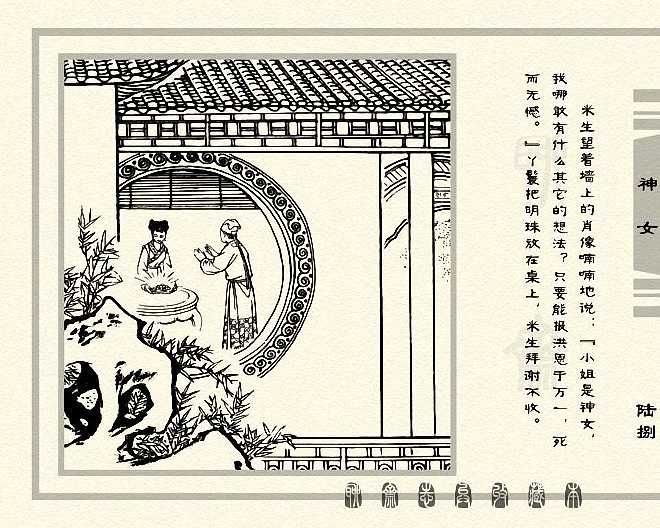 米生望着墙上的肖像喃喃地说：『小姐是神女，
我哪敢有什么其它的想法？只要能报洪恩于万一，死
而无憾。』丫鬟把明珠放在桌上，米生拜谢不收。
神女
陆捌
聊斋志异收藏本